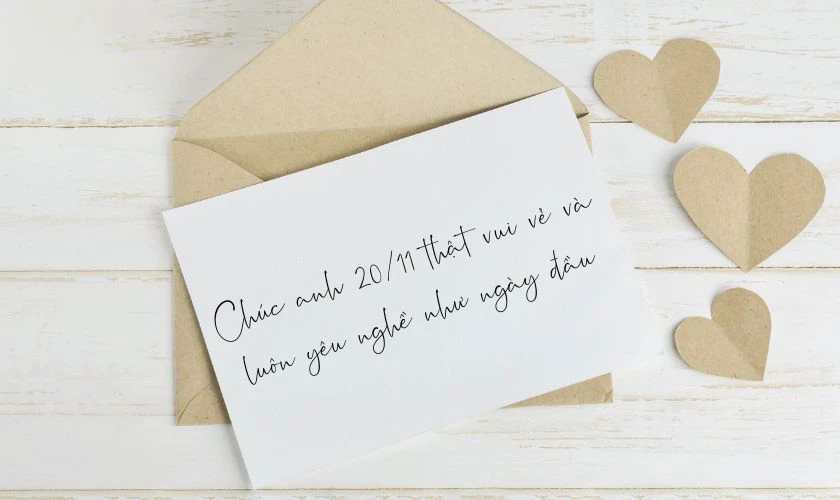 Chúc anh 20/11 thật vui vẻ và
luôn yêu nghề như ngày đầu